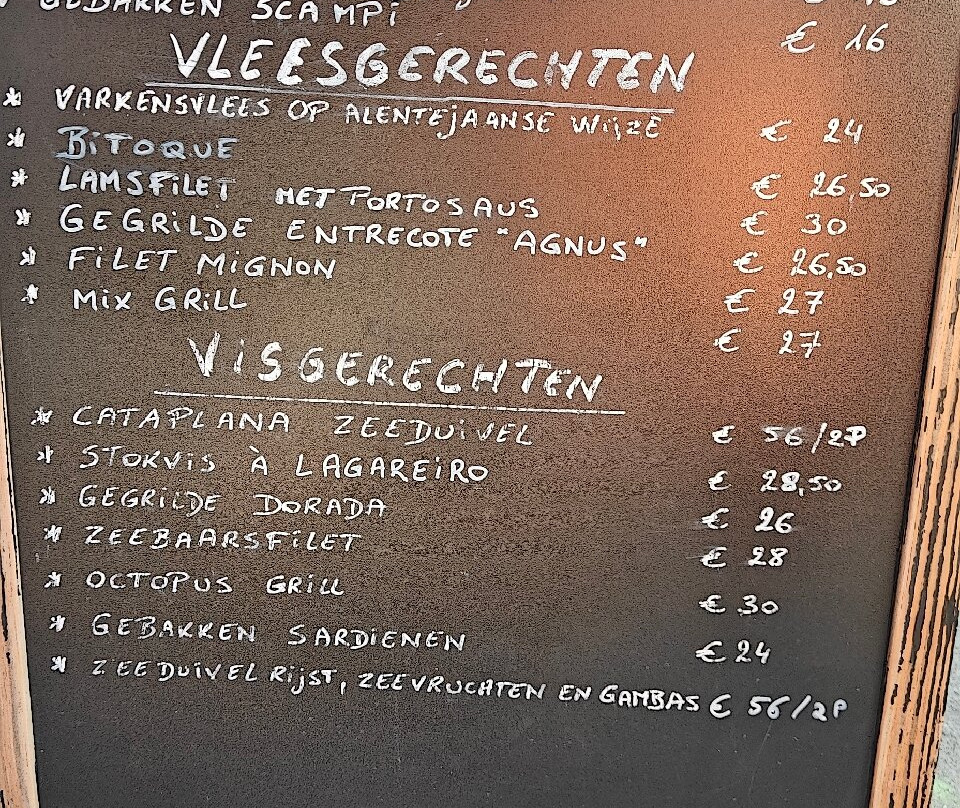 GEBAKKEN SCAMPi € 16
VLEESGERECHTEN
* VARKENSVLEES OP ALENTEjAANSE WijZE € 24
* BiTOQUE € 26,50
* LAMSFiLET MET PORTOSAUS € 30
* GEGRiLDE ENTRECOTE "AGNUS" € 26,50
* FiLET MiGNON € 27
* Mix GRiLL € 27
ViSGERECHTEN
* CATAPLANA ZEEDUiVEL € 56/2P
* STOKViS À LAGAREiRO € 28,50
* GEGRiLDE DORADA € 26
* ZEEBAARSFiLET € 28
* OCTOPUS GRiLL € 30
* GEBAKKEN SARDiENEN € 24
* ZEEDUiVEL RijST, ZEEVRUCHTEN EN GAMBAS € 56/2P